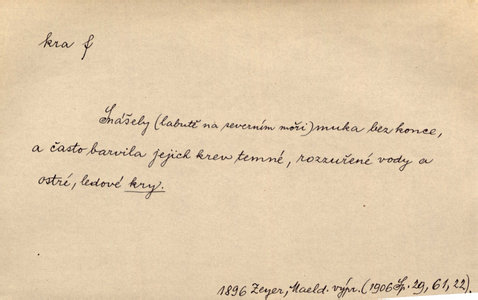 kra f
Snášely (labutě na severním moři) muka bez konce,
a často barvila jejich krev temné, rozzuřené vody a
ostré, ledové kry.
1896 Zeyer, Maeld. výpr. (1906 Sp. 29, 61, 22).